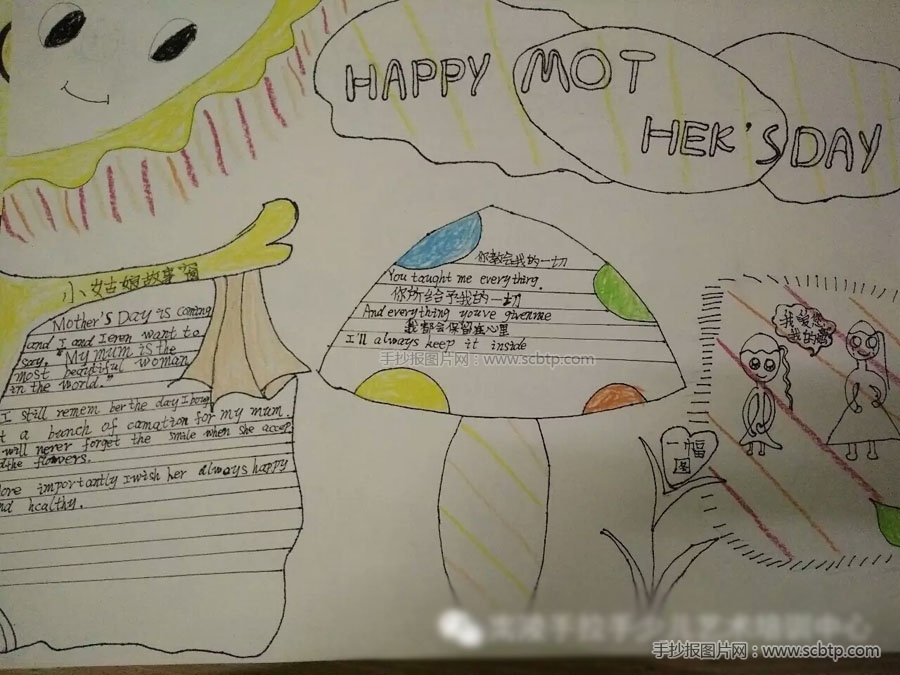 HAPPY MOT
HEK'S DAY
小姑娘故事
Mother's Day is coming
and I and I eren want to
say. "My mum is the
most beautiful woman
in the world."
I still remem ber the day I boug
t a bunch of camation for my mum.
will never forget the smile when she accep
dthe flowers.
ore importantly I wish her always happy
nd healthy.
你教会我的一切
You taught me everything.
你所给予我的一切
And everything you've givenme
我都会保留在心里
I'll always keep it inside
手抄报图片网：www.scbtp.com
我爱您
我的妈
一幅
图
手抄报图片网：www.scbtp.com